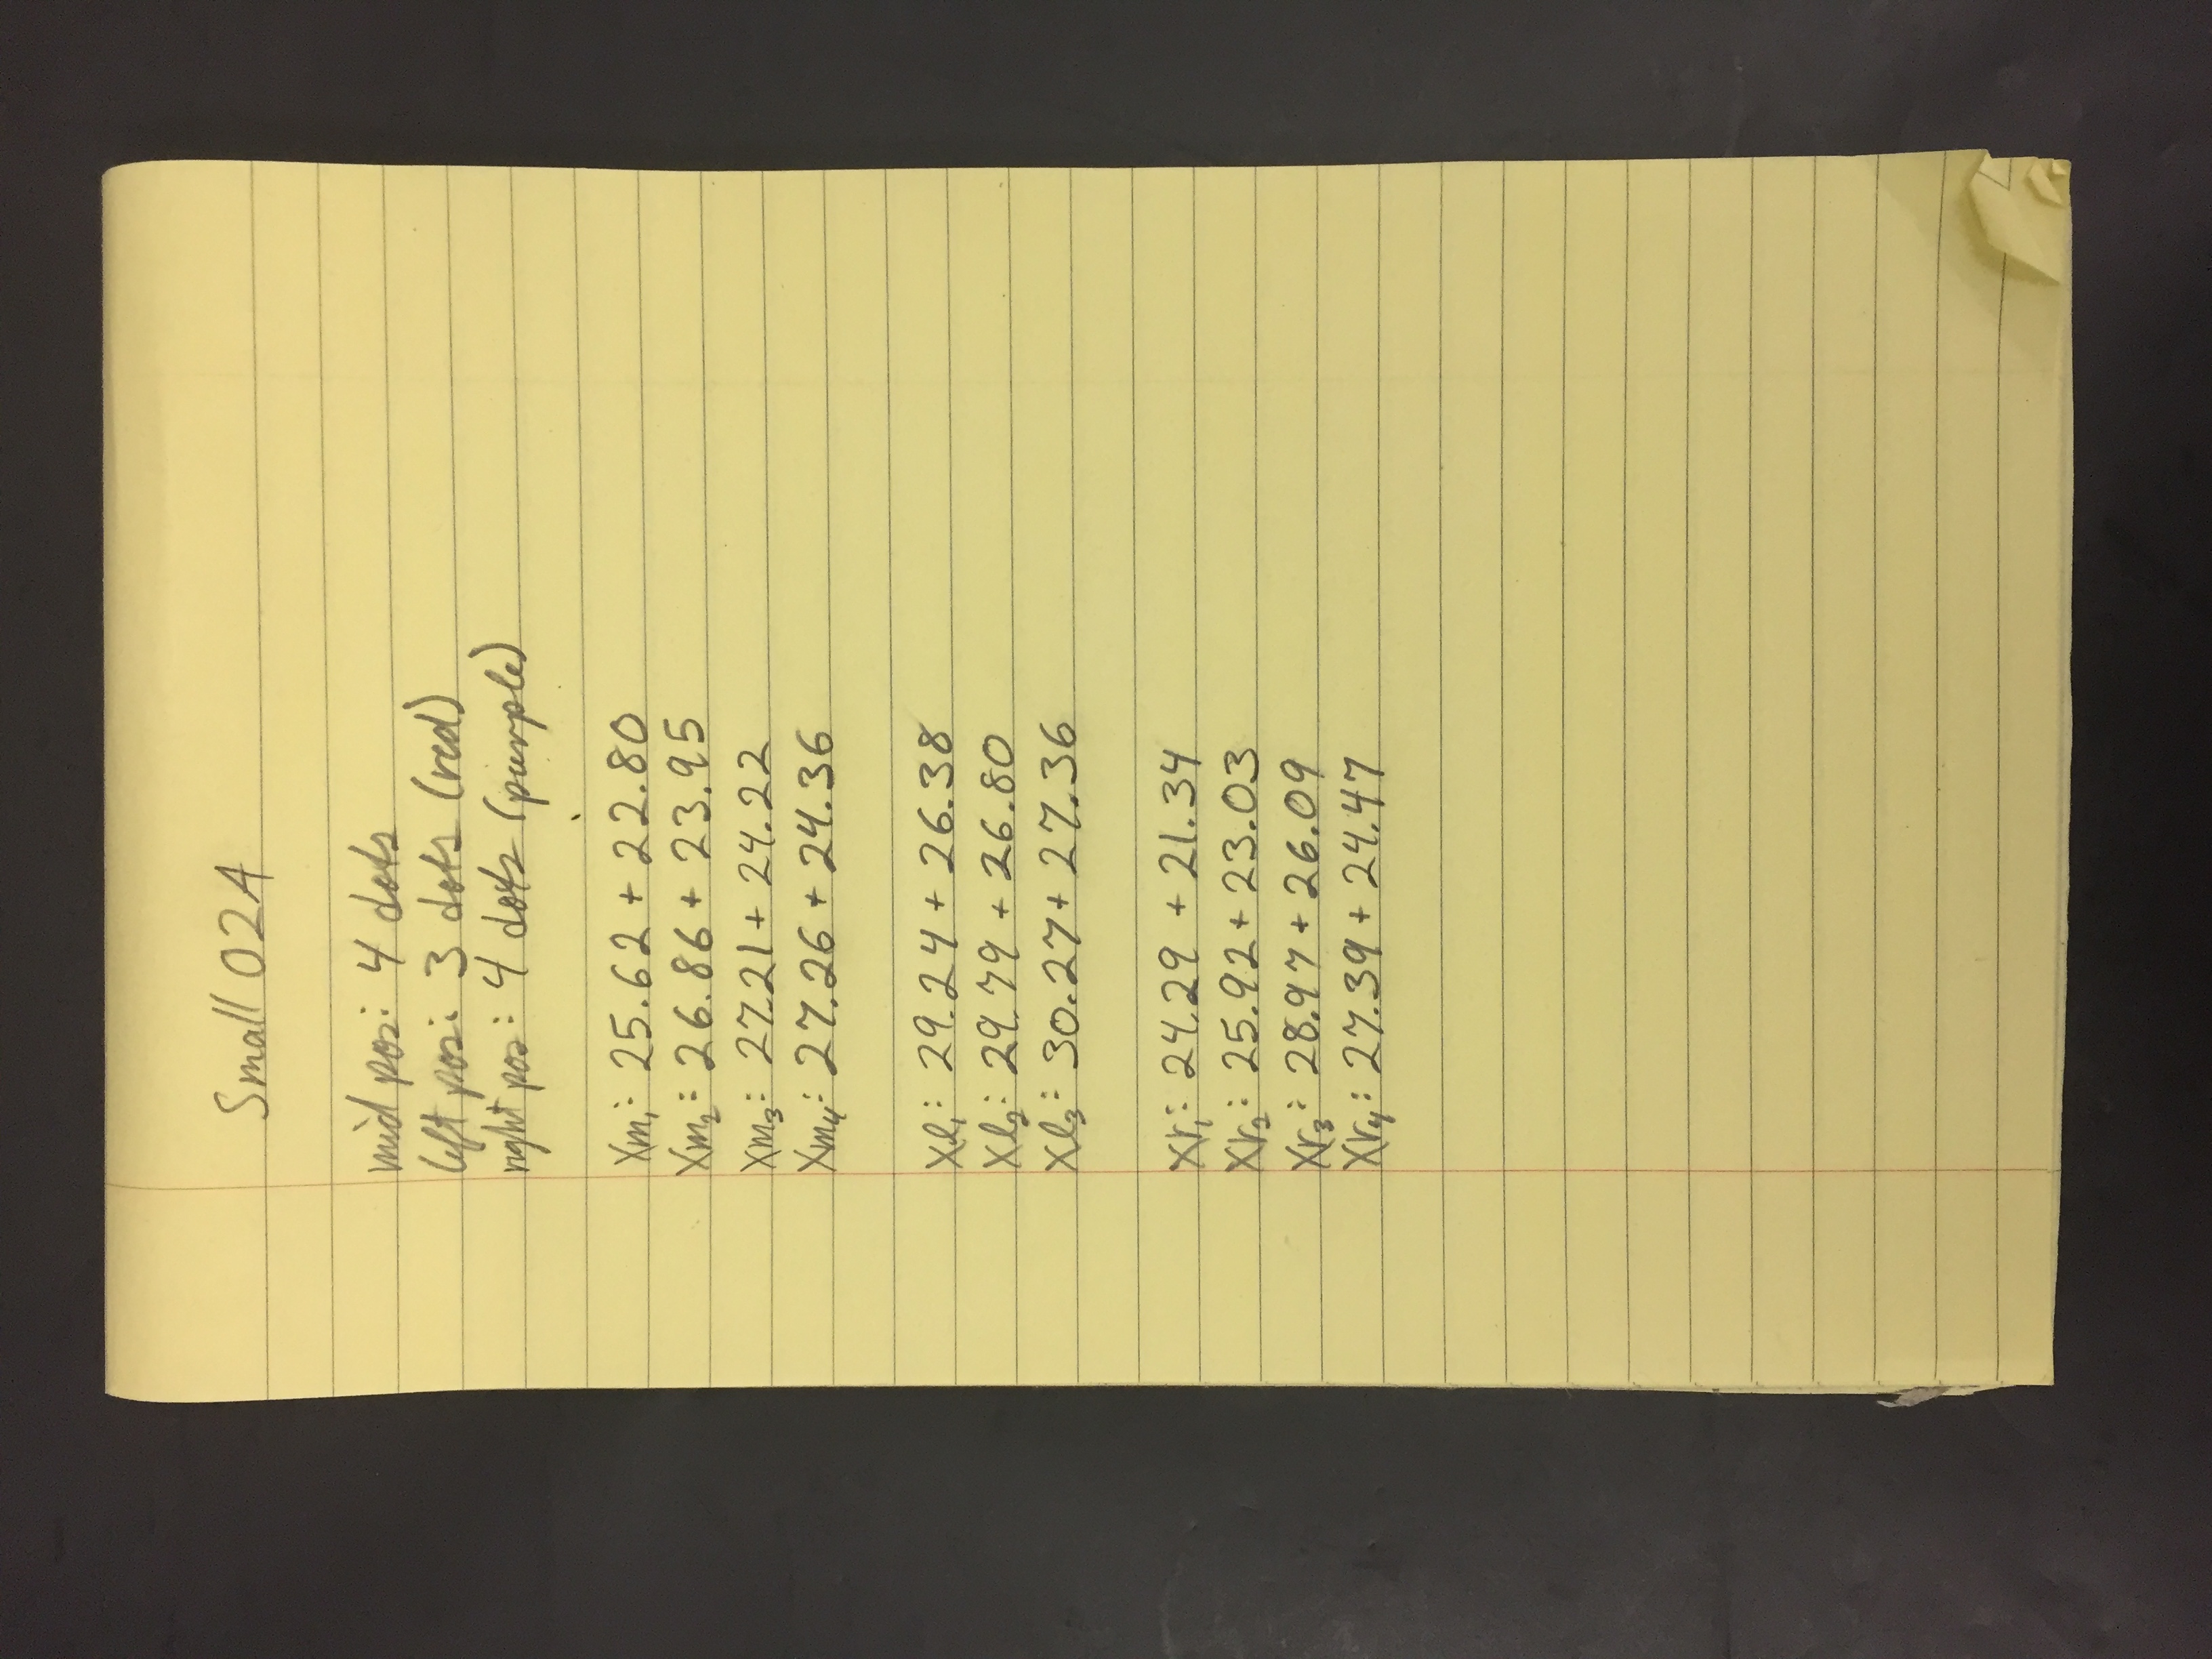 Small 02A
mid pos: 4 dots
left pos: 3 dots (red)
right pos: 4 dots (purple)
Xm₁: 25.62 + 22.80
Xm₂: 26.86 + 23.95
Xm₃: 27.21 + 24.22
Xm₄: 27.26 + 24.36
Xl₁: 29.24 + 26.38
Xl₂: 29.79 + 26.80
Xl₃: 30.27 + 27.36
Xr₁: 24.29 + 21.34
Xr₂: 25.92 + 23.03
Xr₃: 28.97 + 26.09
Xr₄: 27.39 + 24.47